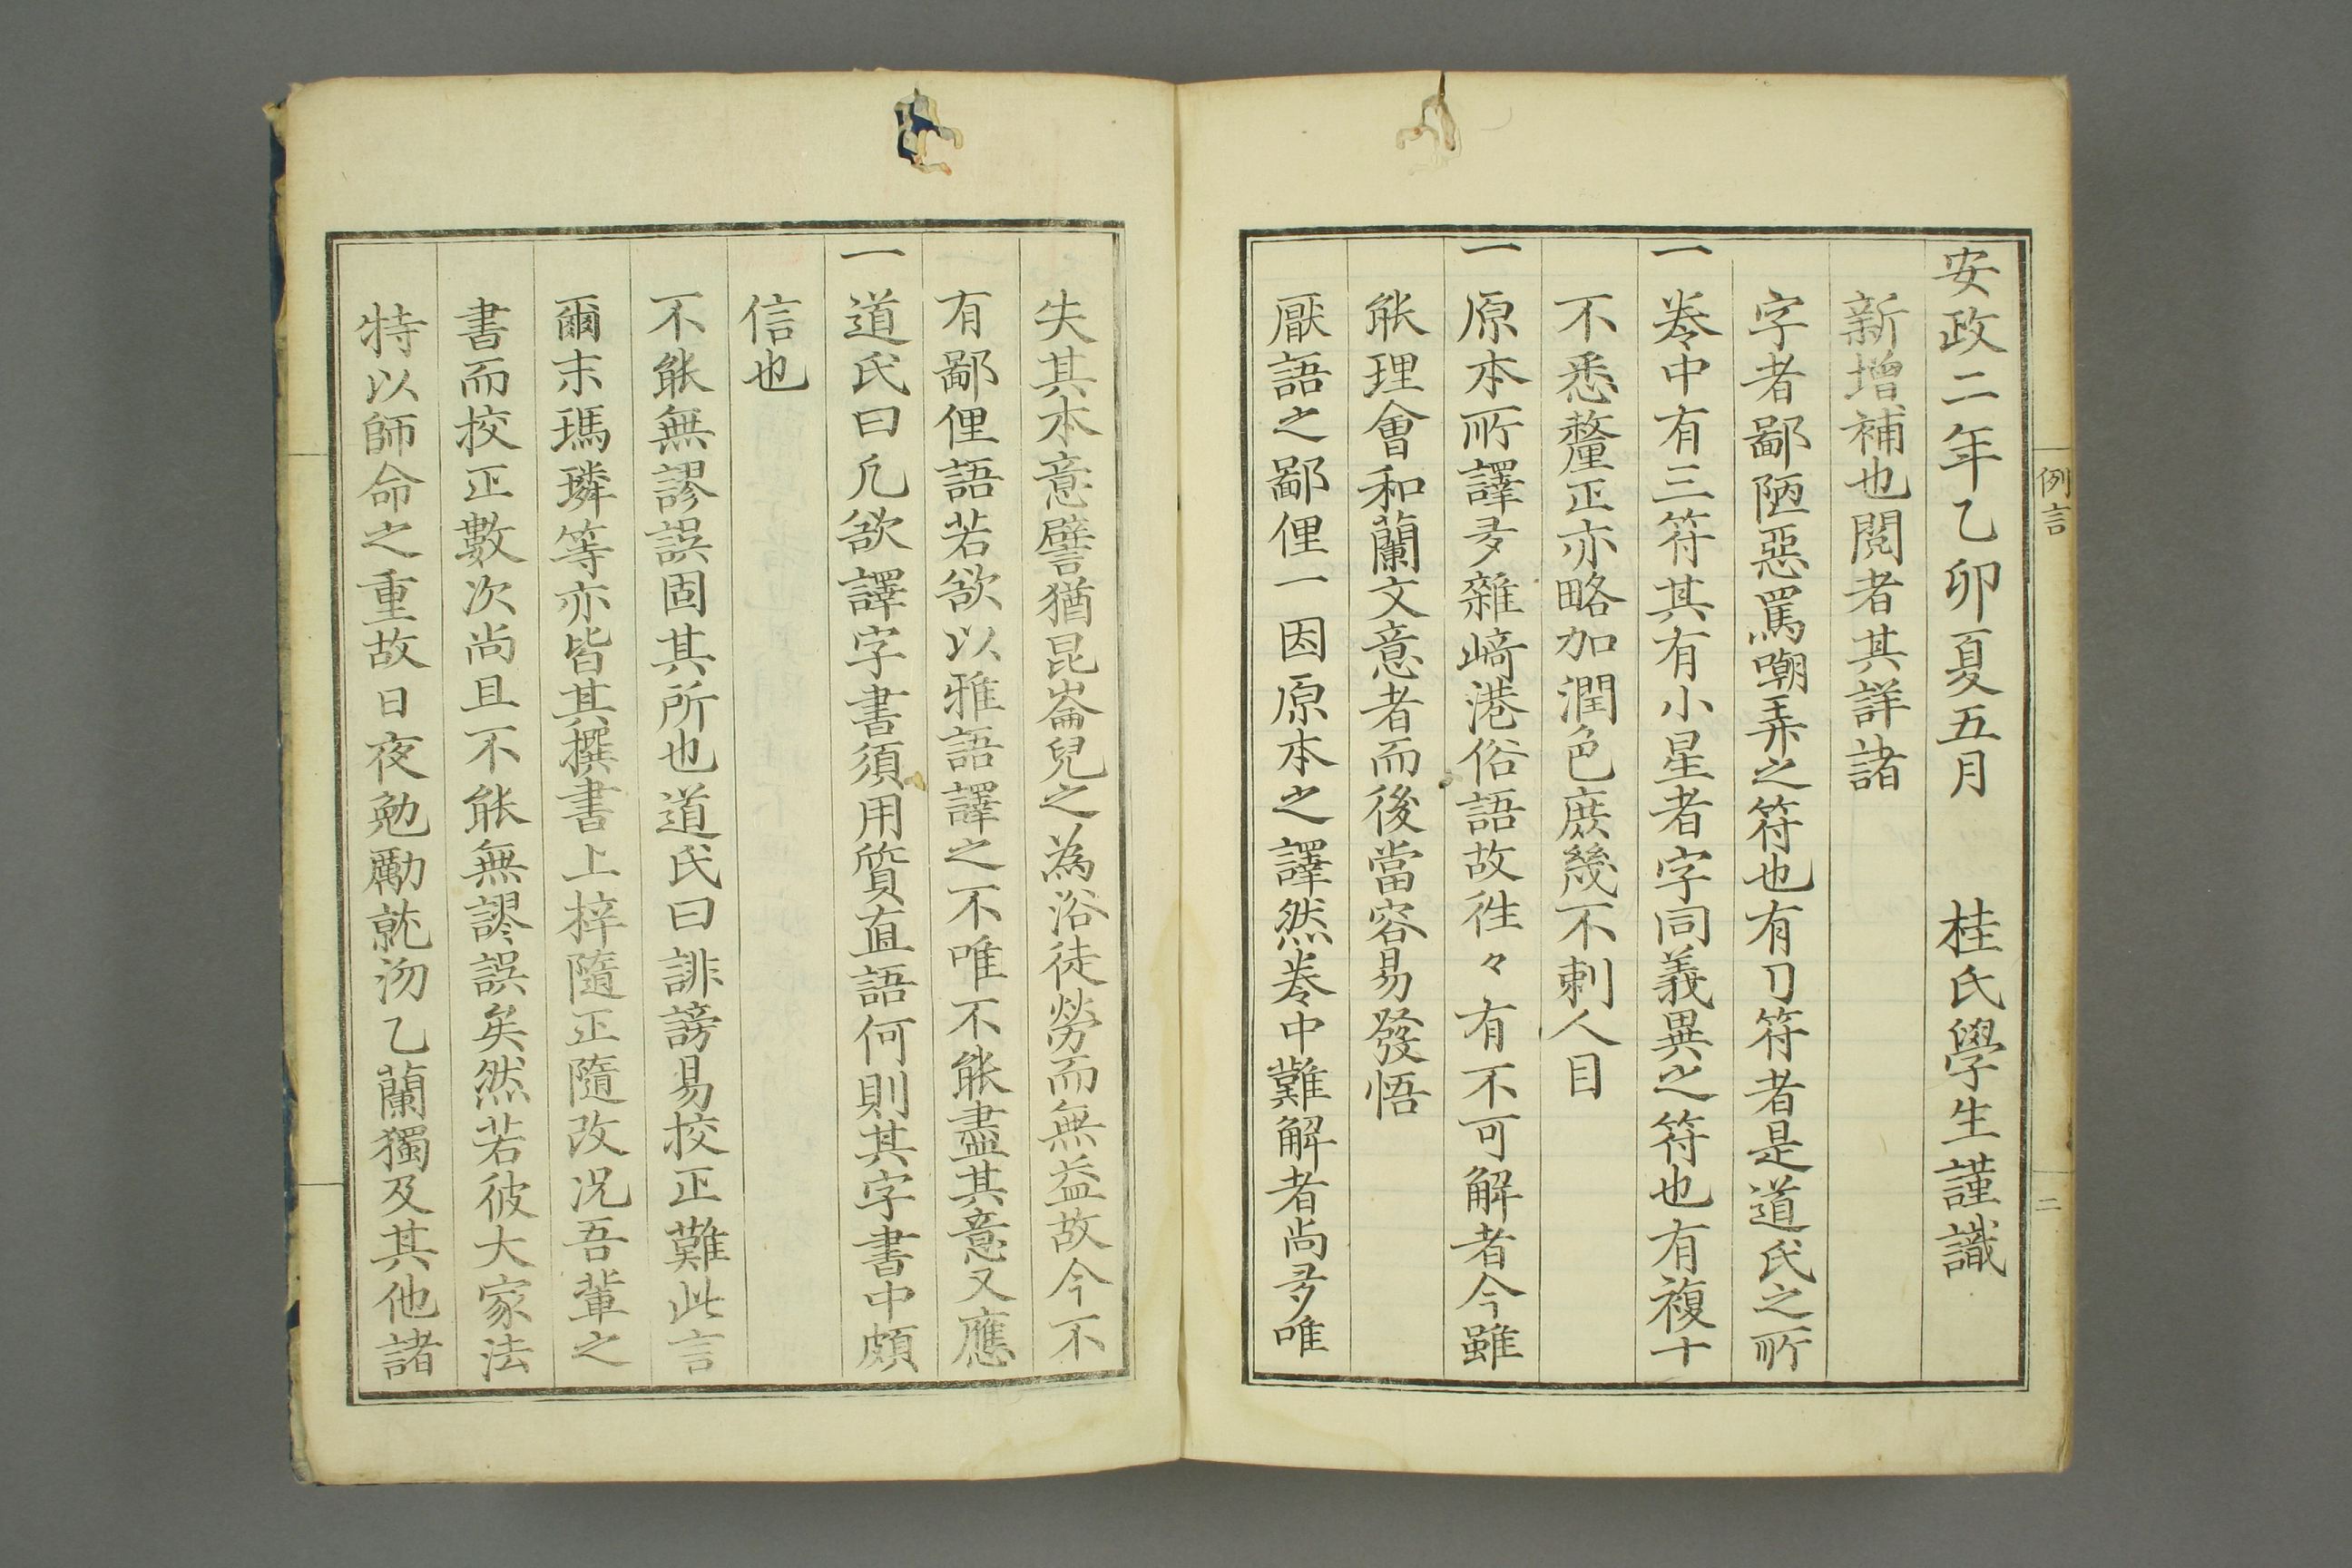 特以師命之重故日夜勉勵就沕乙蘭獨及其他諸
書而挍正數次尚且不能無謬誤矣然若彼大家法
爾末瑪璘等亦皆其撰書上梓隨正隨改况吾輩之
不能無謬誤固其所也道氏曰誹謗易挍正難此言
信也
一道氏曰凡欲譯字書須用質直語何則其字書中頗
有鄙俚語若欲以雅語譯之不唯不能盡其意又應
失其本意譬猶昆崙兒之為浴徒勞而無益故今不
厭語之鄙俚一因原本之譯然巻中難解者尚多唯
能理會和蘭文意者而後當容易發悟
一原本所譯多雜﨑港俗語故徃々有不可解者今雖
不悉釐正亦略加潤色庶幾不刺人目
一巻中有三符其有小星者字同義異之符也有複十
字者鄙陋惡罵嘲弄之符也有刀符者是道氏之所
新增補也閲者其詳諸
安政二年乙卯夏五月　桂氏學生謹識
例言
二